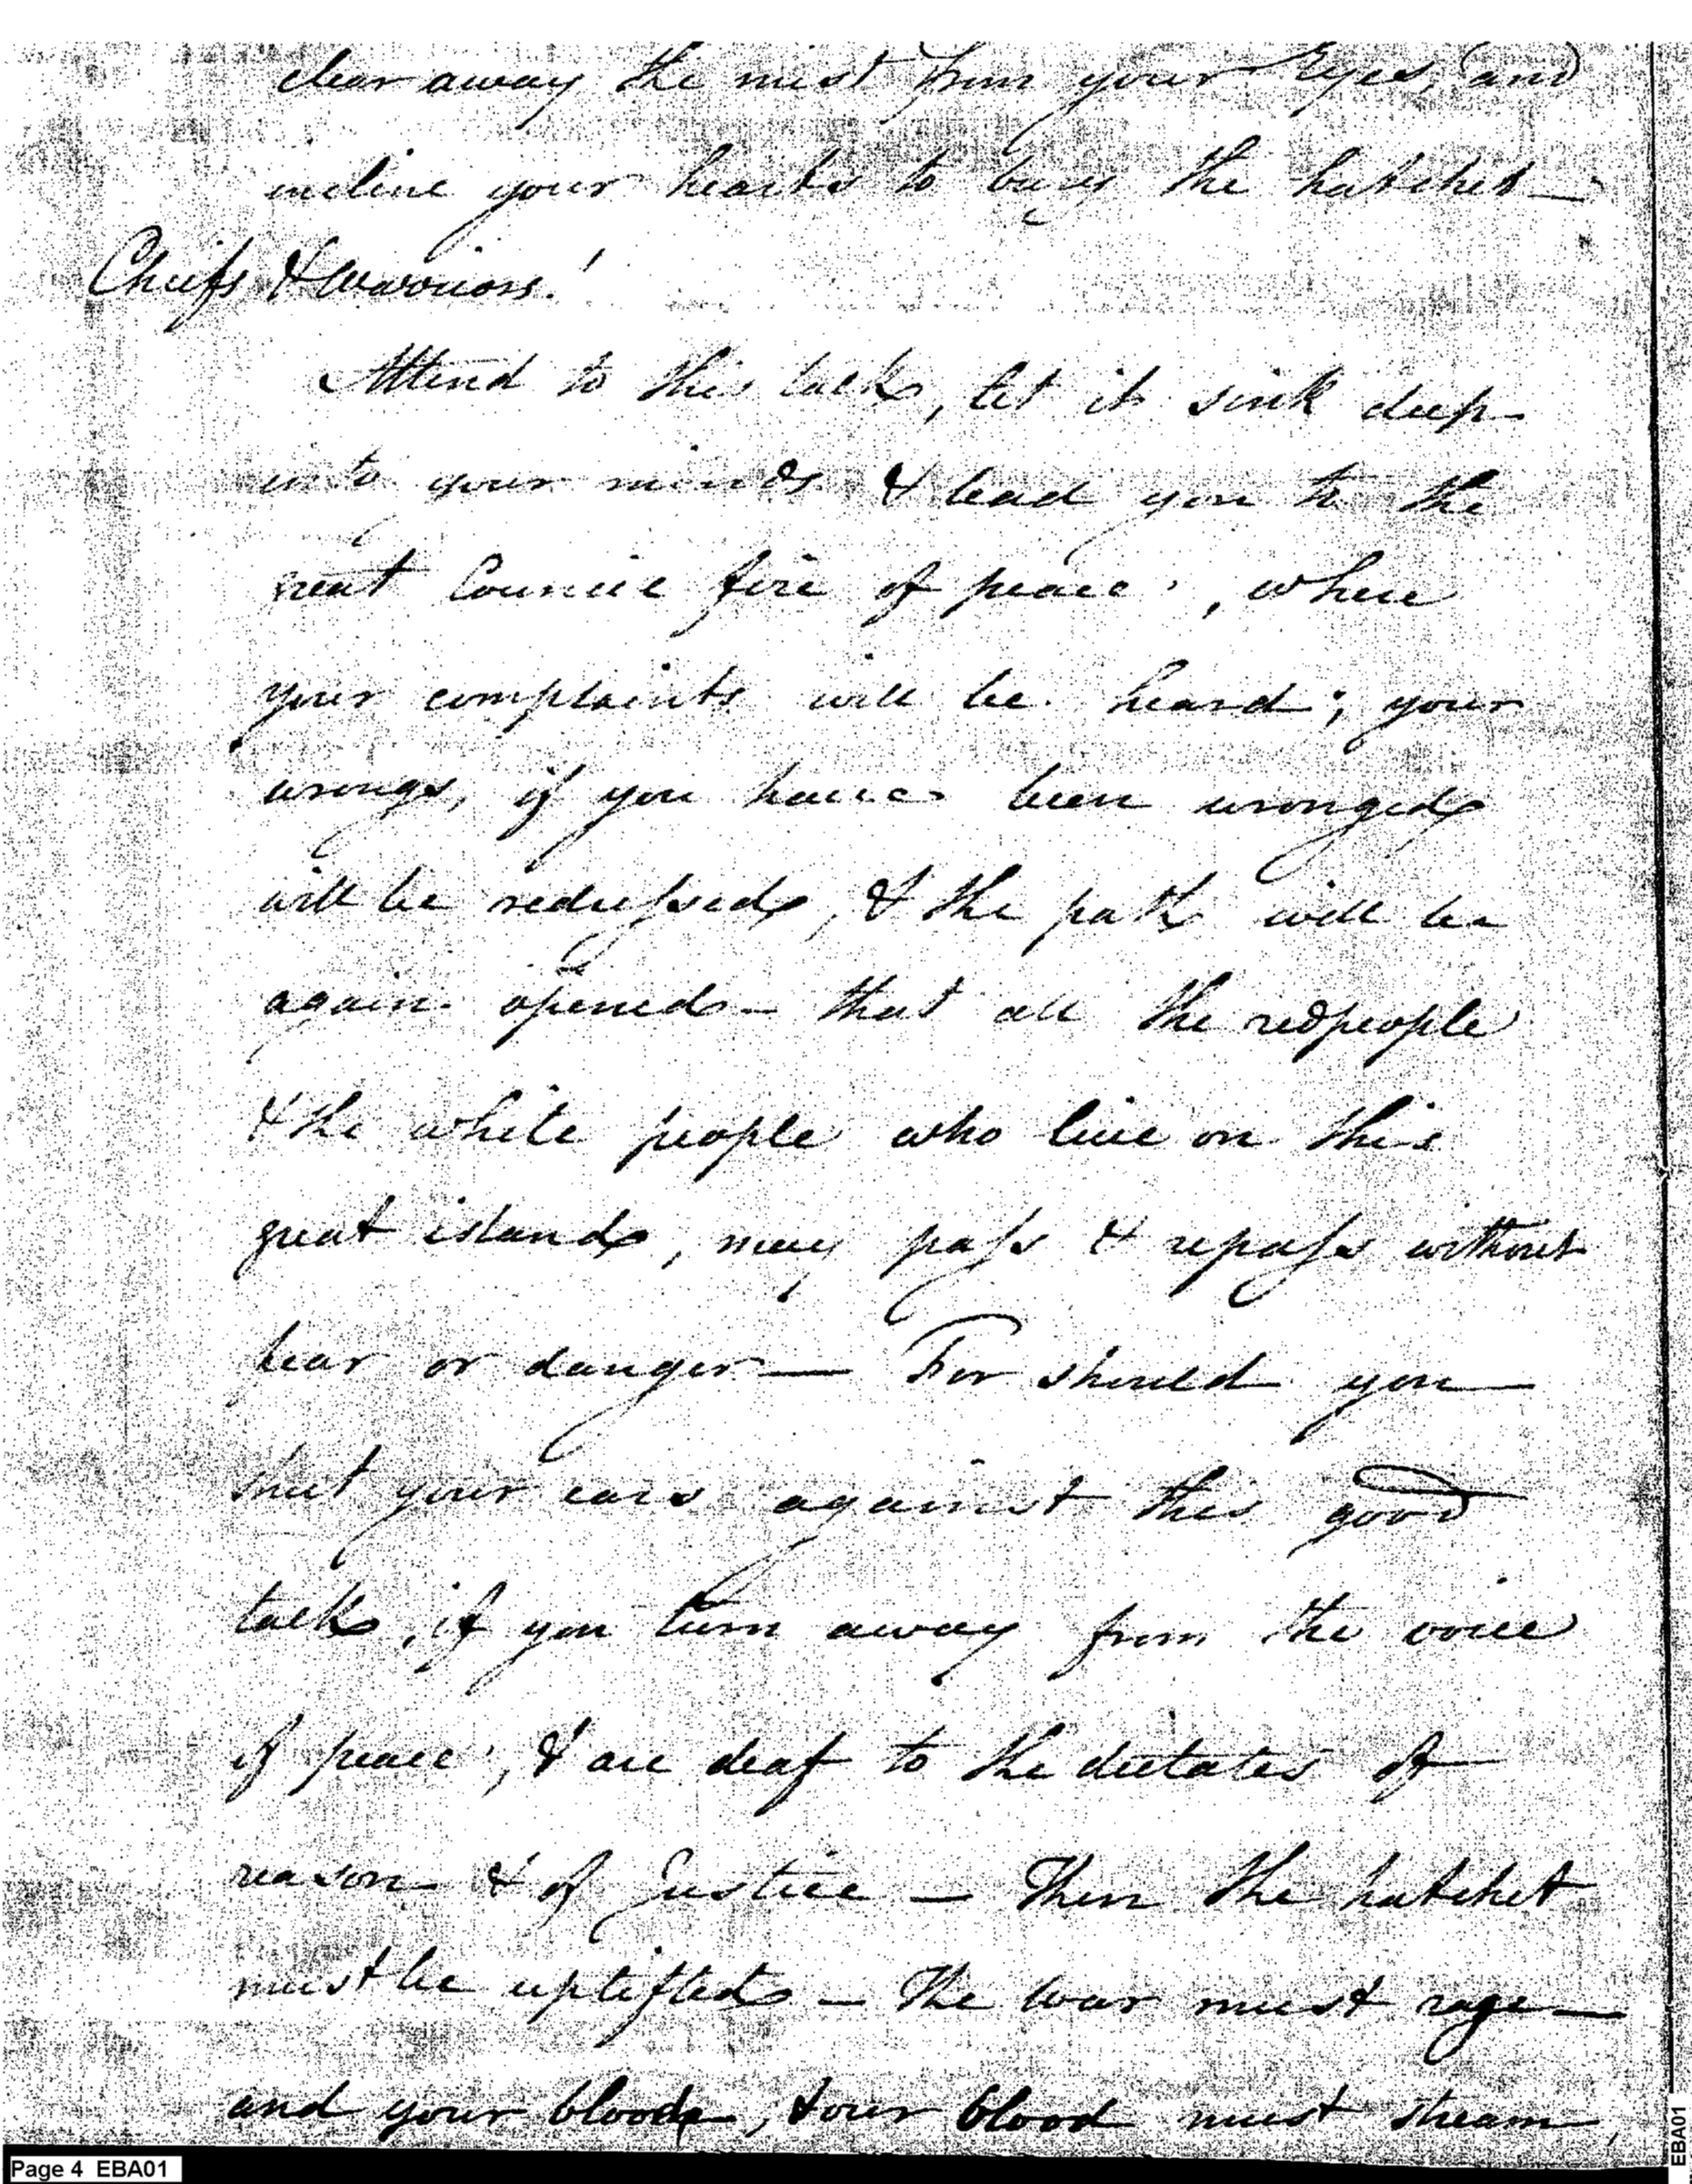 clear away the mist from your Eyes, and
incline your hearts to bury the hatchet —
Chiefs & Warriors!
Attend to this talk, let it sink deep
into your minds & lead you to the
great Council fire of peace, where
your complaints will be heard; your
wrongs, if you have been wronged,
will be redressed, & the path will be
again opened — that all the red people
& the white people who live on this
great island, may pass & repass without
fear or danger — For should you
shut your ears against this good
talk, if you turn away from the voice
of peace, & are deaf to the dictates of
reason & of Justice — Then the hatchet
must be uplifted — The war must rage —
and your blood, & our blood must stream,
Page 4 EBA01
EBA01